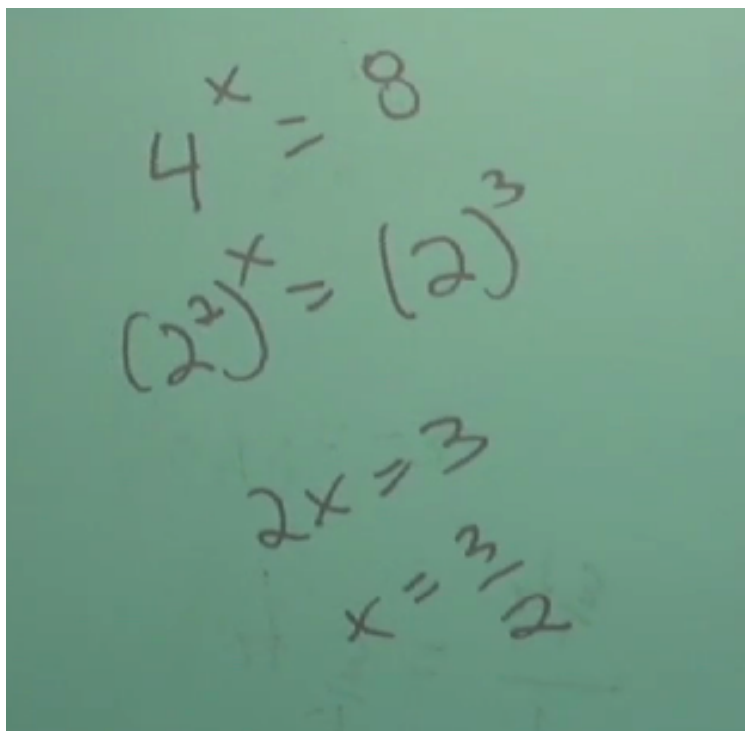 4^x = 8
(2^2)^x = (2)^3
2x = 3
x = 3/2